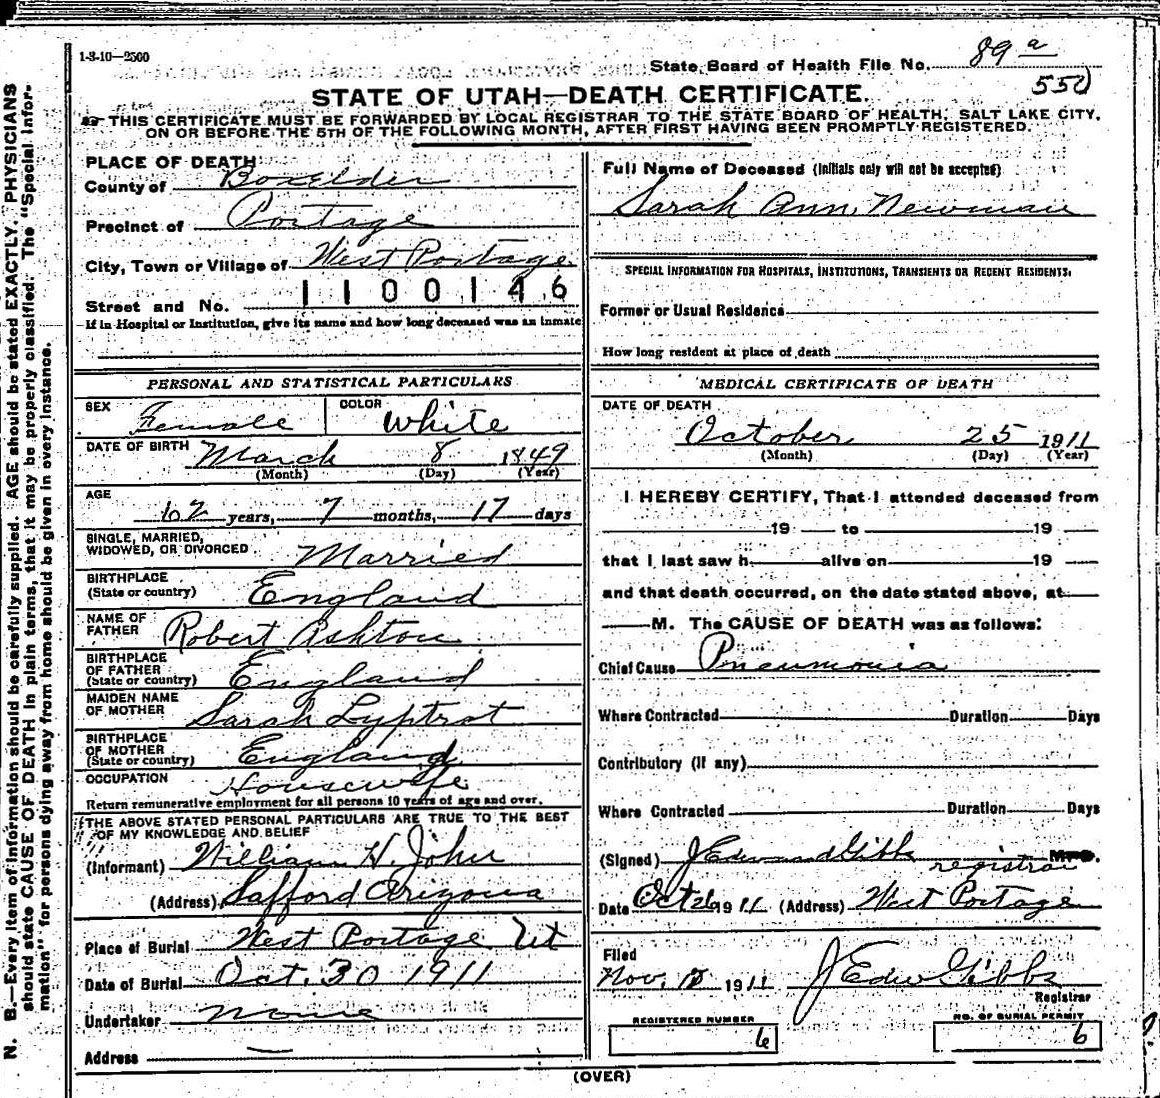 1-3-10—2500
State Board of Health File No. 89 a
550
STATE OF UTAH—DEATH CERTIFICATE.
THIS CERTIFICATE MUST BE FORWARDED BY LOCAL REGISTRAR TO THE STATE BOARD OF HEALTH, SALT LAKE CITY,
ON OR BEFORE THE 5TH OF THE FOLLOWING MONTH, AFTER FIRST HAVING BEEN PROMPTLY REGISTERED.
PLACE OF DEATH:
County of Boxelder
Precinct of Portage
City, Town or Village of West Portage
Street and No. 1100146
If in Hospital or Institution, give its name and how long deceased was an inmate
PERSONAL AND STATISTICAL PARTICULARS
SEX Female COLOR White
DATE OF BIRTH March 8 1849
(Month) (Day) (Year)
AGE
62 years, 7 months, 17 days
SINGLE, MARRIED,
WIDOWED, OR DIVORCED Married
BIRTHPLACE
(State or country) England
NAME OF
FATHER Robert Ashton
BIRTHPLACE
OF FATHER
(State or country) England
MAIDEN NAME
OF MOTHER Sarah Lyptrot
BIRTHPLACE
OF MOTHER
(State or country) England
OCCUPATION Housewife
Return remunerative employment for all persons 10 years of age and over.
THE ABOVE STATED PERSONAL PARTICULARS ARE TRUE TO THE BEST
OF MY KNOWLEDGE AND BELIEF
(Informant) William H. John
(Address) Safford Arizona
Place of Burial West Portage Ut
Date of Burial Oct. 30 1911
Undertaker None
Address —
Full Name of Deceased (Initials only will not be accepted)
Sarah Ann Newman
SPECIAL INFORMATION FOR HOSPITALS, INSTITUTIONS, TRANSIENTS OR RECENT RESIDENTS.
Former or Usual Residence
How long resident at place of death
MEDICAL CERTIFICATE OF DEATH
DATE OF DEATH
October 25 1911
(Month) (Day) (Year)
I HEREBY CERTIFY, That I attended deceased from
19 — to 19 —
that I last saw h alive on 19 —
and that death occurred, on the date stated above, at
M. The CAUSE OF DEATH was as follows:
Chief Cause Pneumonia
Where Contracted Duration Days
Contributory (if any)
Where Contracted Duration Days
(Signed) J Edward Gibbs registrar
Date Oct 26 1911 (Address) West Portage
Filed
Nov. 1911 J Edw Gibbs
Registrar
REGISTERED NUMBER
6
NO. OF BURIAL PERMIT
6
(OVER)
N. B.—Every item of information should be carefully supplied. AGE should be stated EXACTLY. PHYSICIANS
should state CAUSE OF DEATH in plain terms, that it may be properly classified. The "Special Infor-
mation" for persons dying away from home should be given in every instance.